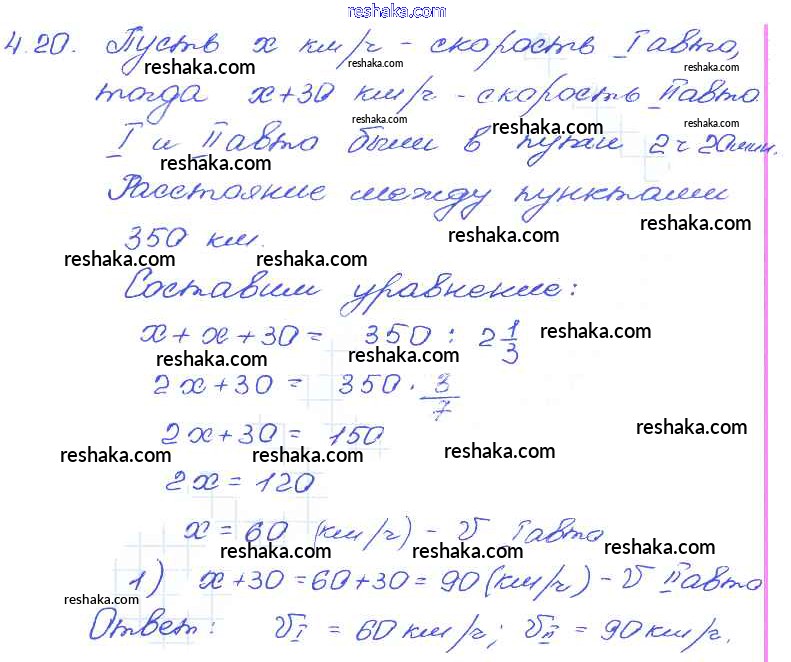 reshaka.com
4.20. Пусть x км/ч - скорость I авто,
reshaka.com reshaka.com
тогда x+30 км/ч - скорость II авто
reshaka.com reshaka.com reshaka.com
I и II авто были в пути 2 ч 20 мин.
reshaka.com
Расстояние между пунктами
reshaka.com
350 км.
reshaka.com reshaka.com reshaka.com
Составим уравнение:
x + x + 30 = 350 : 2 1/3
reshaka.com
reshaka.com reshaka.com
2x + 30 = 350 · 3/7
2x + 30 = 150
reshaka.com
reshaka.com reshaka.com reshaka.com
2x = 120
x = 60 (км/ч) - V I авто
reshaka.com reshaka.com
1) x + 30 = 60 + 30 = 90 (км/ч) - V II авто
reshaka.com
Ответ: V I = 60 км/ч; V II = 90 км/ч.
reshaka.com reshaka.com